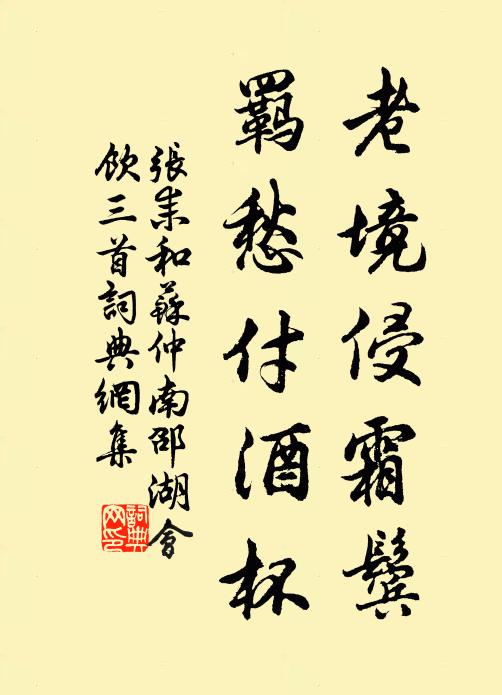 老境侵霜鬢
羈愁付酒杯
張耒和蘇仲南邵湖會
飲三首詞典網集
詞典
网印